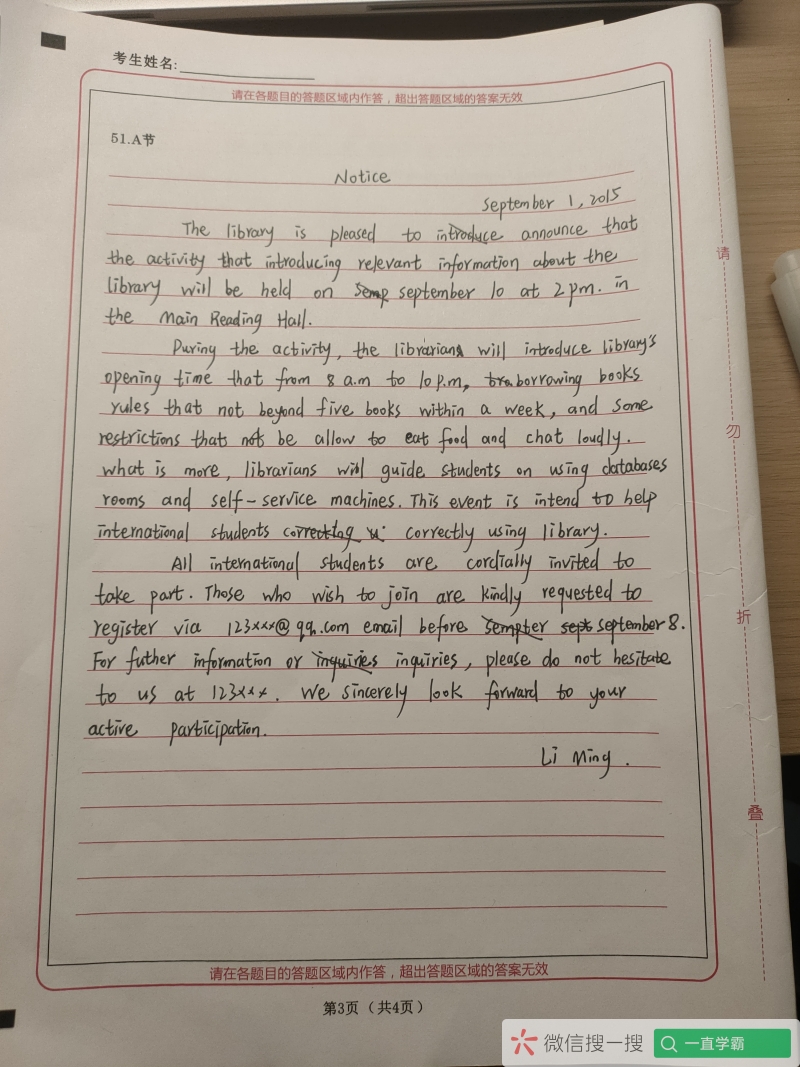 考生姓名:
请在各题目的答题区域内作答，超出答题区域的答案无效
51.A节
Notice
September 1, 2015
The library is pleased to introduce announce that
the activity that introducing relevant information about the
library will be held on Semp september 10 at 2 pm. in
the Main Reading Hall.
During the activity, the librarians will introduce library's
opening time that from 8 a.m to 10 p.m, borrowing books
rules that not beyond five books within a week, and some
restrictions that not be allow to eat food and chat loudly.
what is more, librarians will guide students on using databases
rooms and self-service machines. This event is intend to help
international students correctly using library.
All international students are cordially invited to
take part. Those who wish to join are kindly requested to
register via 123xxx@qq.com email before Sempter sept september 8.
For futher information or inquiries inquiries, please do not hesitate
to us at 123xxx. We sincerely look forward to your
active participation.
Li Ming.
请在各题目的答题区域内作答，超出答题区域的答案无效
第3页（共4页）
请
勿
折
叠
微信搜一搜
一直学霸